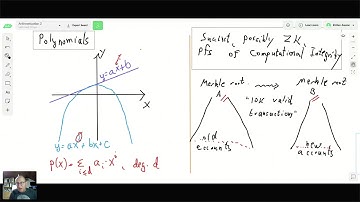 Polynomials
y
y=ax+b
x
y=ax²+bx+c
p(x) = Σ aᵢ·xⁱ, deg. d
i≤d
Succinct, possibly ZK,
pfs of Computational Integrity
Merkle root
A
old
accounts
"10K valid
transaction"
Merkle root
B
new
accounts